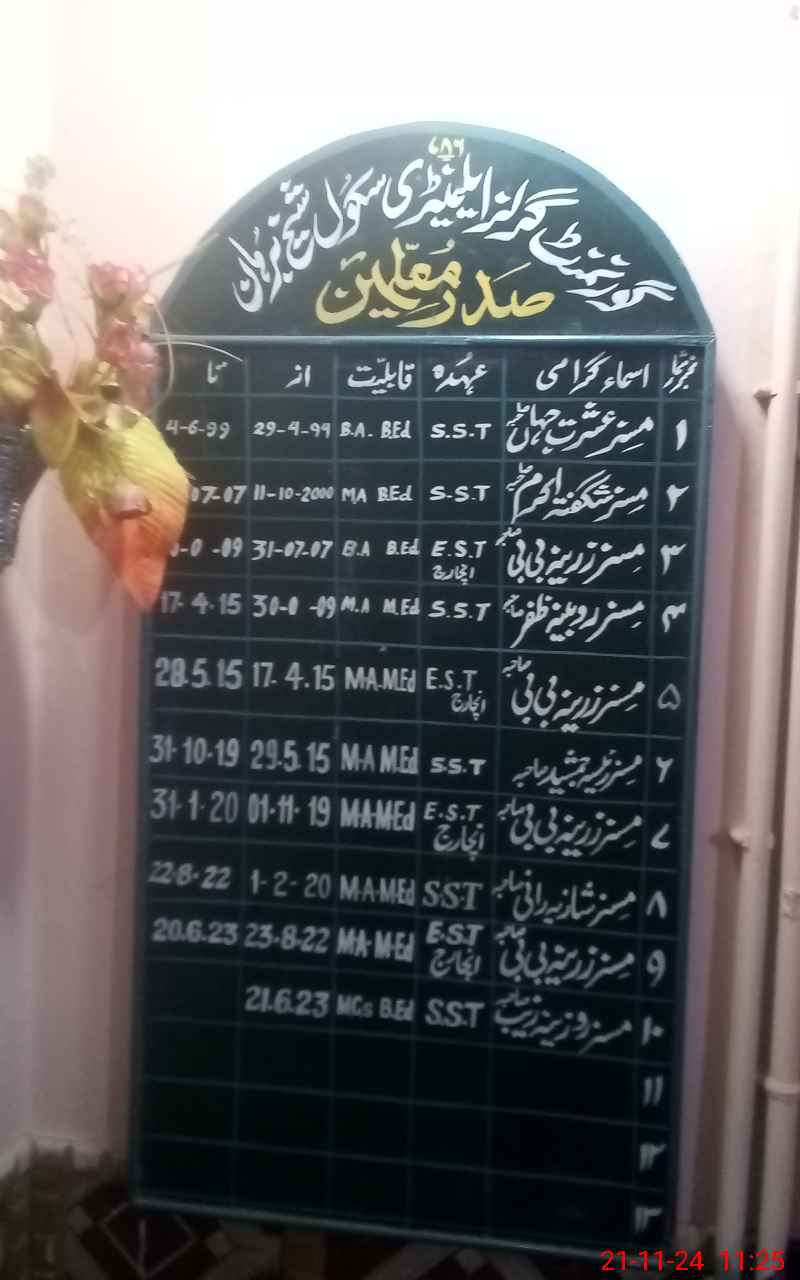 ۷۸۶
گورنمنٹ گرلز ایلیمنٹری سکول شیخ برہان
صدر معلمین
نمبر شمار اسماء گرامی عہدہ قابلیت از تا
۱ مسز عشرت جہاں صاحبہ S.S.T B.A. B.Ed 29-4-99 4-6-99
۲ مسز شگفتہ اکرم صاحبہ S.S.T MA B.Ed 11-10-2000 07-07
۳ مسز زرینہ بی بی صاحبہ E.S.T انچارج B.A B.Ed 31-07-07 -0 -09
۴ مسز روبینہ ظفر صاحبہ S.S.T M.A M.Ed 30-0 -09 17.4.15
۵ مسز زرینہ بی بی صاحبہ E.S.T انچارج M.A.M.Ed 17.4.15 28.5.15
۶ مسز جمشید صاحبہ S.S.T M.A M.Ed 29.5.15 31-10-19
۷ مسز زرینہ بی بی صاحبہ E.S.T انچارج M.A.M.Ed 01-11-19 31-1-20
۸ مسز شازیہ رانی صاحبہ S.S.T M.A.M.Ed 1-2-20 22-8-22
۹ مسز زرینہ بی بی صاحبہ E.S.T انچارج M.A.M.Ed 23-8-22 20.6.23
۱۰ مسز زیب صاحبہ S.S.T MCs B.Ed 21.6.23
۱۱
۱۲
۱۳
21-11-24 11:25